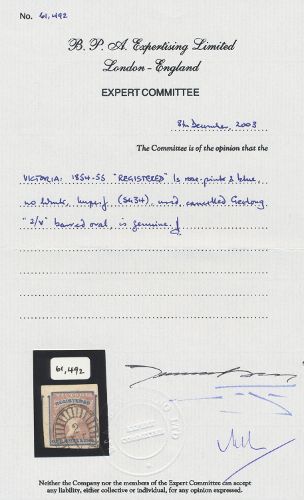 No. 61,492
B. P. A. Expertising Limited
London - England
EXPERT COMMITTEE
8th December, 2003
The Committee is of the opinion that the
VICTORIA: 1854-55 "REGISTERED" 1s rose-pink & blue,
no wmk, imperf (SG34), used, cancelled Geelong
"2/V" barred oval, is genuine.
61,492
REGISTERED
2
EXPERT
COMMITTEE
LTD
Neither the Company nor the members of the Expert Committee can accept
any liability, either collective or individual, for any opinion expressed.